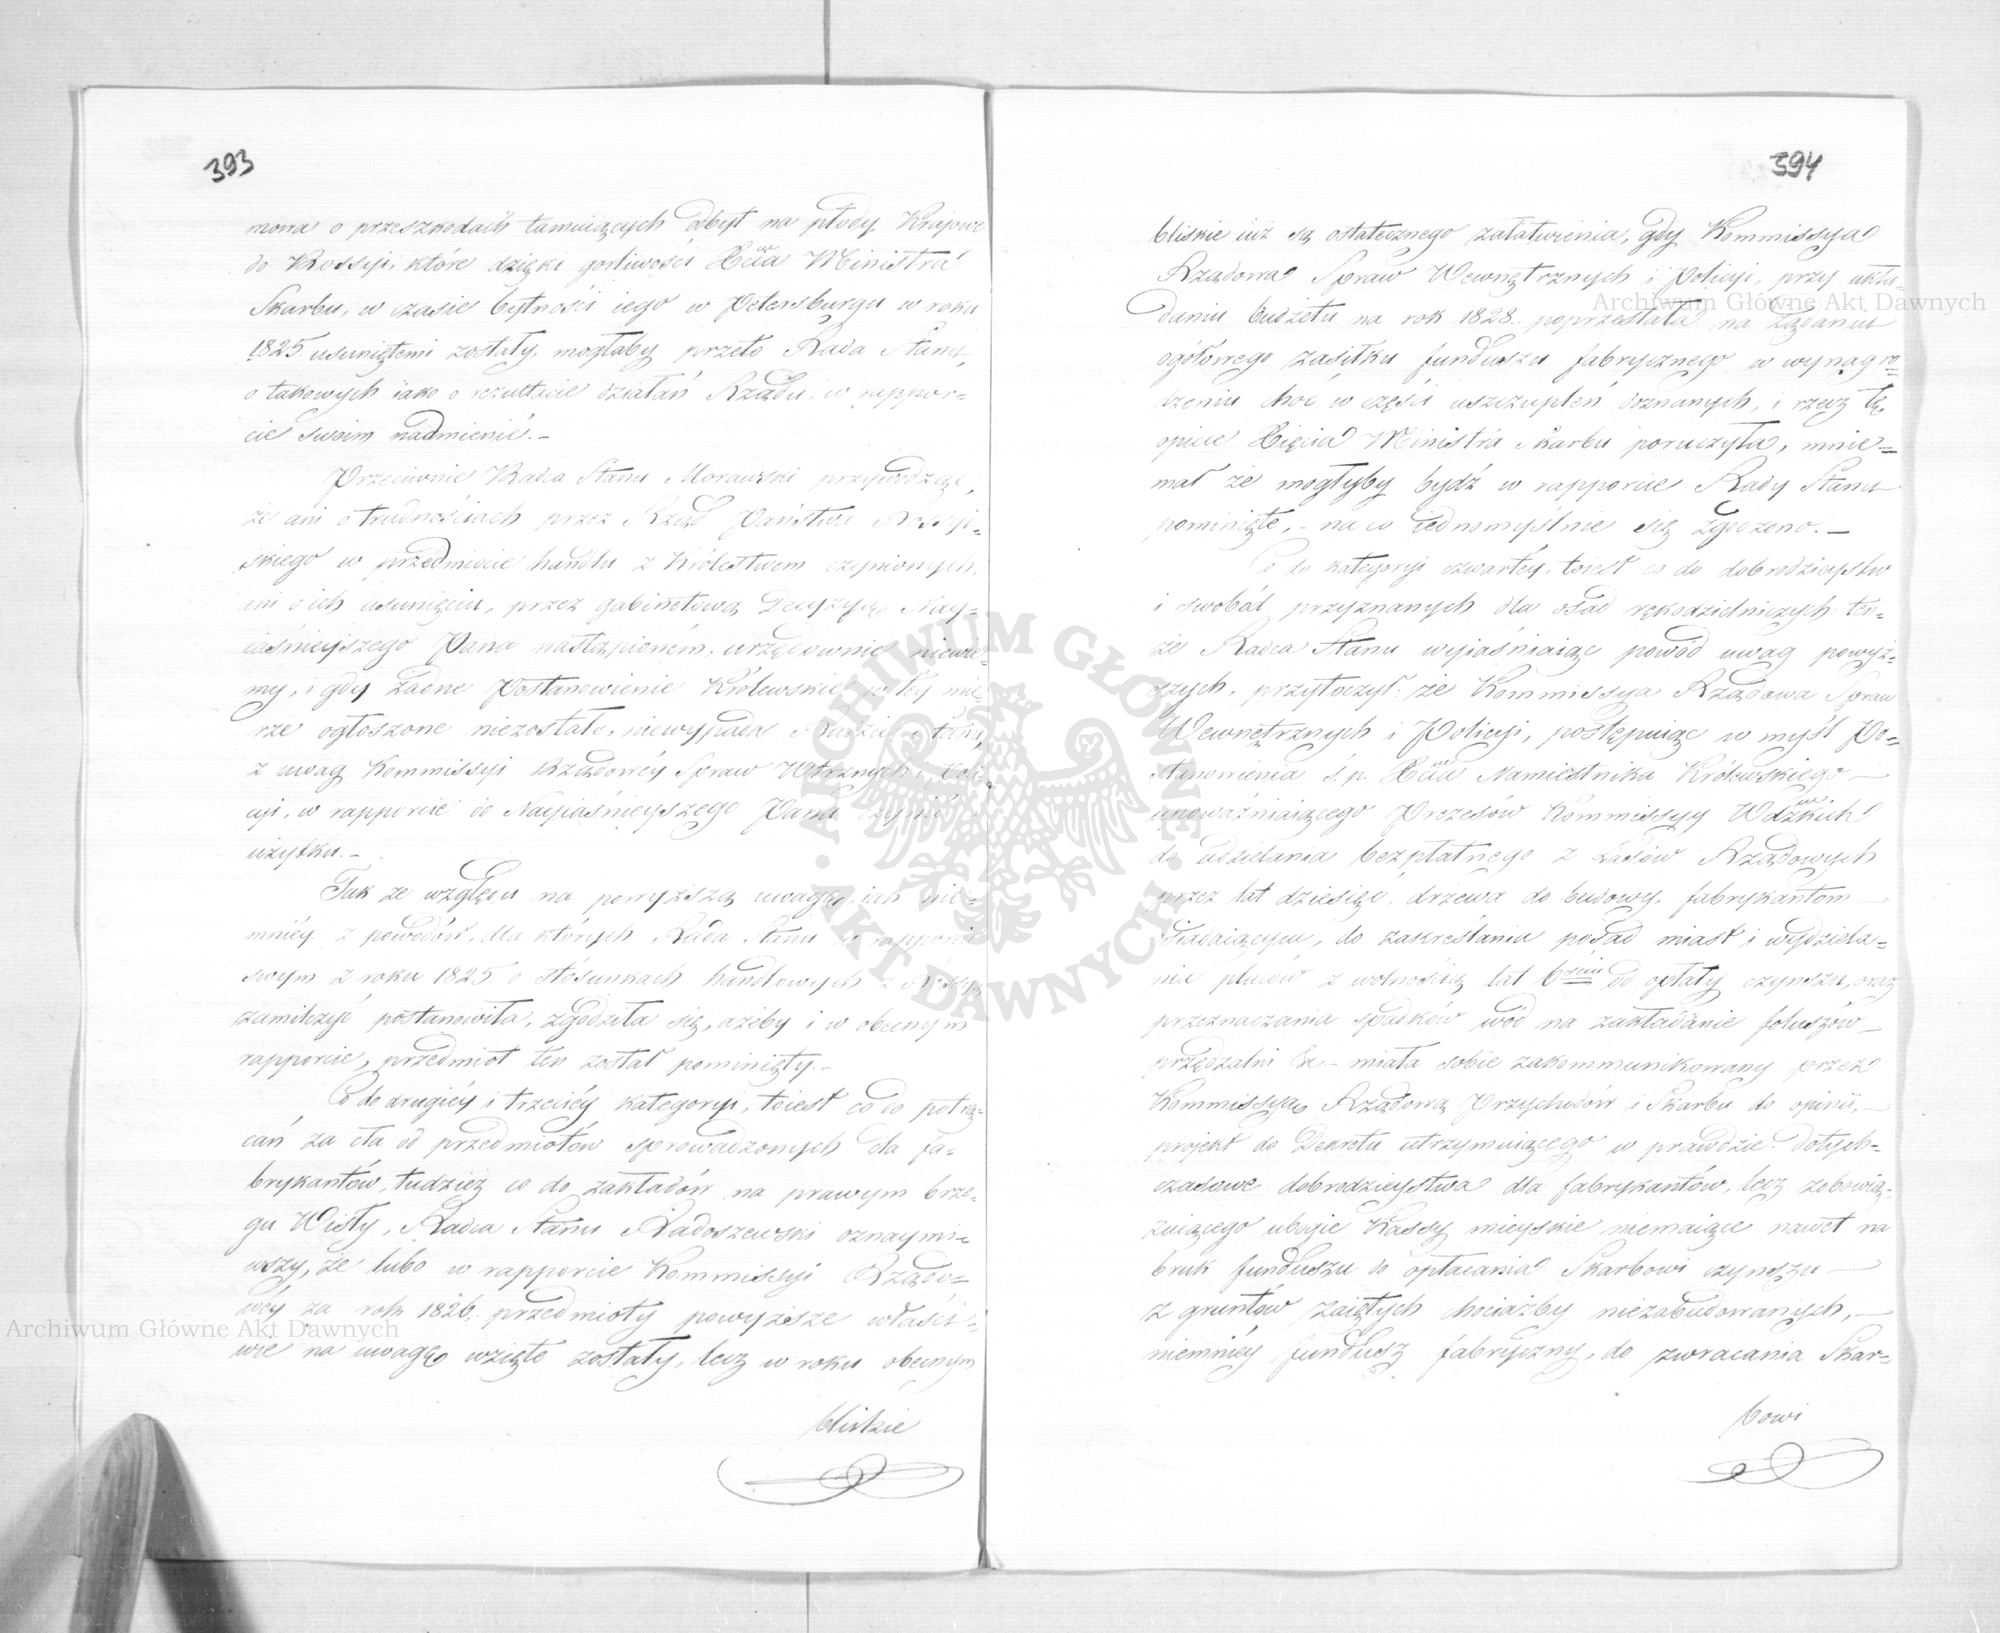 393
mowa o przeszkodach tamuiących odbyt na płody Kraiowe
do Rossyi, które dzięki gorliwości Xcia Ministra
Skarbu, w czasie bytności iego w Petersburgu w roku
1825 usuniętemi zostały, mogłaby przeto Rada Stanu,
o takowych iako o rezultacie działań Rządu, w rappor=
cie swoim nadmienić.–
Przeciwnie Radca Stanu Morawski przywodząc,
że ani o trudnościach przez Rząd Państwa Rossyi=
skiego w przedmiocie handlu z Królestwem czynionych,
ani o ich usunięciu, przez gabinetową Decyzyą Nay=
iaśnieyszego Pana nastąpioném, urzędownie niewie=
my, i gdy żadne Postanowienie Królewskie w tey mie=
rze ogłoszone niezostało, niewypada Radzie Stanu,
z uwag Kommissyi Rządowéy Spraw Wtrznych i Poli=
cyi, w rapporcie do Nayiaśnieyszego Pana czynić
użytku.–
Tak ze względu na powyższą uwagę, iak nie=
mniéy z powodów, dla których Rada Stanu w rapporcie
swym z roku 1825 o stosunkach handlowych z Rossyą
zamilczyć postanowiła, zgodziła się, ażeby i w obecnym
rapporcie, przedmiot ten został pominięty.–
Co do drugiéy i trzeciéy kategoryi, toiest co do potrą=
cań za cła od przedmiotów sprowadzonych dla fa=
brykantów, tudzież co do zakładów na prawym brze=
gu Wisły, Radca Stanu Radoszewski oznaymi=
wszy, że lubo w rapporcie Kommissyi Rządo=
wéy za rok 1826. przedmioty powyższe właści=
wie na uwagę wzięte zostały, lecz w roku obecnym
bliskie
394
bliskie iuż są ostatecznego załatwienia, gdy Kommissya
Rządowa Spraw Wewnętrznych i Policyi, przy ukła=
daniu budżetu na rok 1828. poprzestała na żądaniu
ogółowego zasiłku funduszu fabrycznego w wynagro=
dzeniu choć w części uszczupleń doznanych, i rzecz tę,
opiece Xięcia Ministra Skarbu poruczyła, mnie=
mał że mogłyby bydź w rapporcie Rady Stanu
pominięte, – na co iednomyślnie się zgodzono.–
Co do kategoryi czwartéy, toiest co do dobrodzieystw
i swobód przyznanych dla osad rękodzielniczych ten=
że Radca Stanu wyiaśniaiąc powód uwag powyż=
szych, przytoczył: że Kommissya Rządowa Spraw
Wewnętrznych i Policyi, postępuiąc w myśl Po=
stanowienia ś. p. Xcia Namiestnika Królewskiego –
upoważniaiącego Prezesów Kommissyy Wdzkich
do udzielania bezpłatnego z Lasów Rządowych
przez lat dziesięć, drzewa do budowy, fabrykantom –
osiadaiącym, do zakreślania posad miast i wydziela=
nia placów z wolnością lat 6ciu od opłaty czynszu, oraz
przeznaczania spadków wód na zakładanie foluszów –
przędzalni &c – miała sobie zakommunikowany przez
Kommissyą Rządową Przychodów i Skarbu do opinii,–
projekt do Dekretu utrzymuiącego w prawdzie dotych=
czasowe dobrodzieystwa dla fabrykantów, lecz zobowią=
zuiącego ubogie Kassy mieyskie niemaiące nawet na
bruk funduszu do opłacania Skarbowi czynszu –
z gruntów zaiętych chociażby niezabudowanych,–
niemniéy fundusz fabryczny, do zwracania Skar=
bowi
Archiwum Główne Akt Dawnych
Archiwum Główne Akt Dawnych
ARCHIWUM GŁÓWNE AKT DAWNYCH